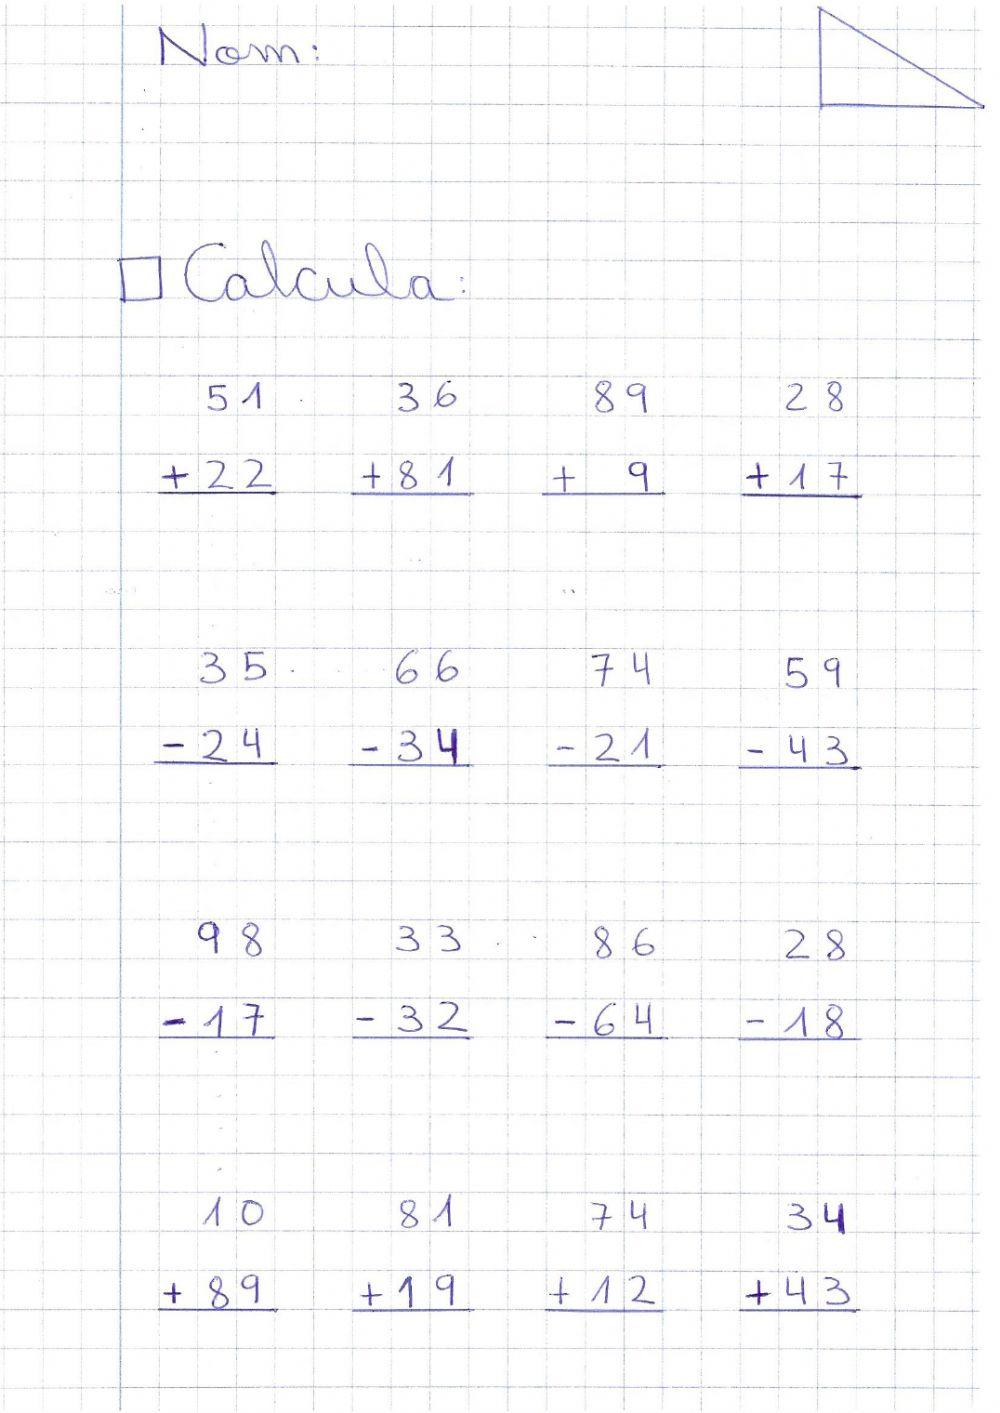 Nom:
Calcula:
51 36 89 28
+22 +81 + 9 +17
35 66 74 59
-24 -34 -21 -43
98 33 86 28
-17 -32 -64 -18
10 81 74 34
+89 +19 +12 +43